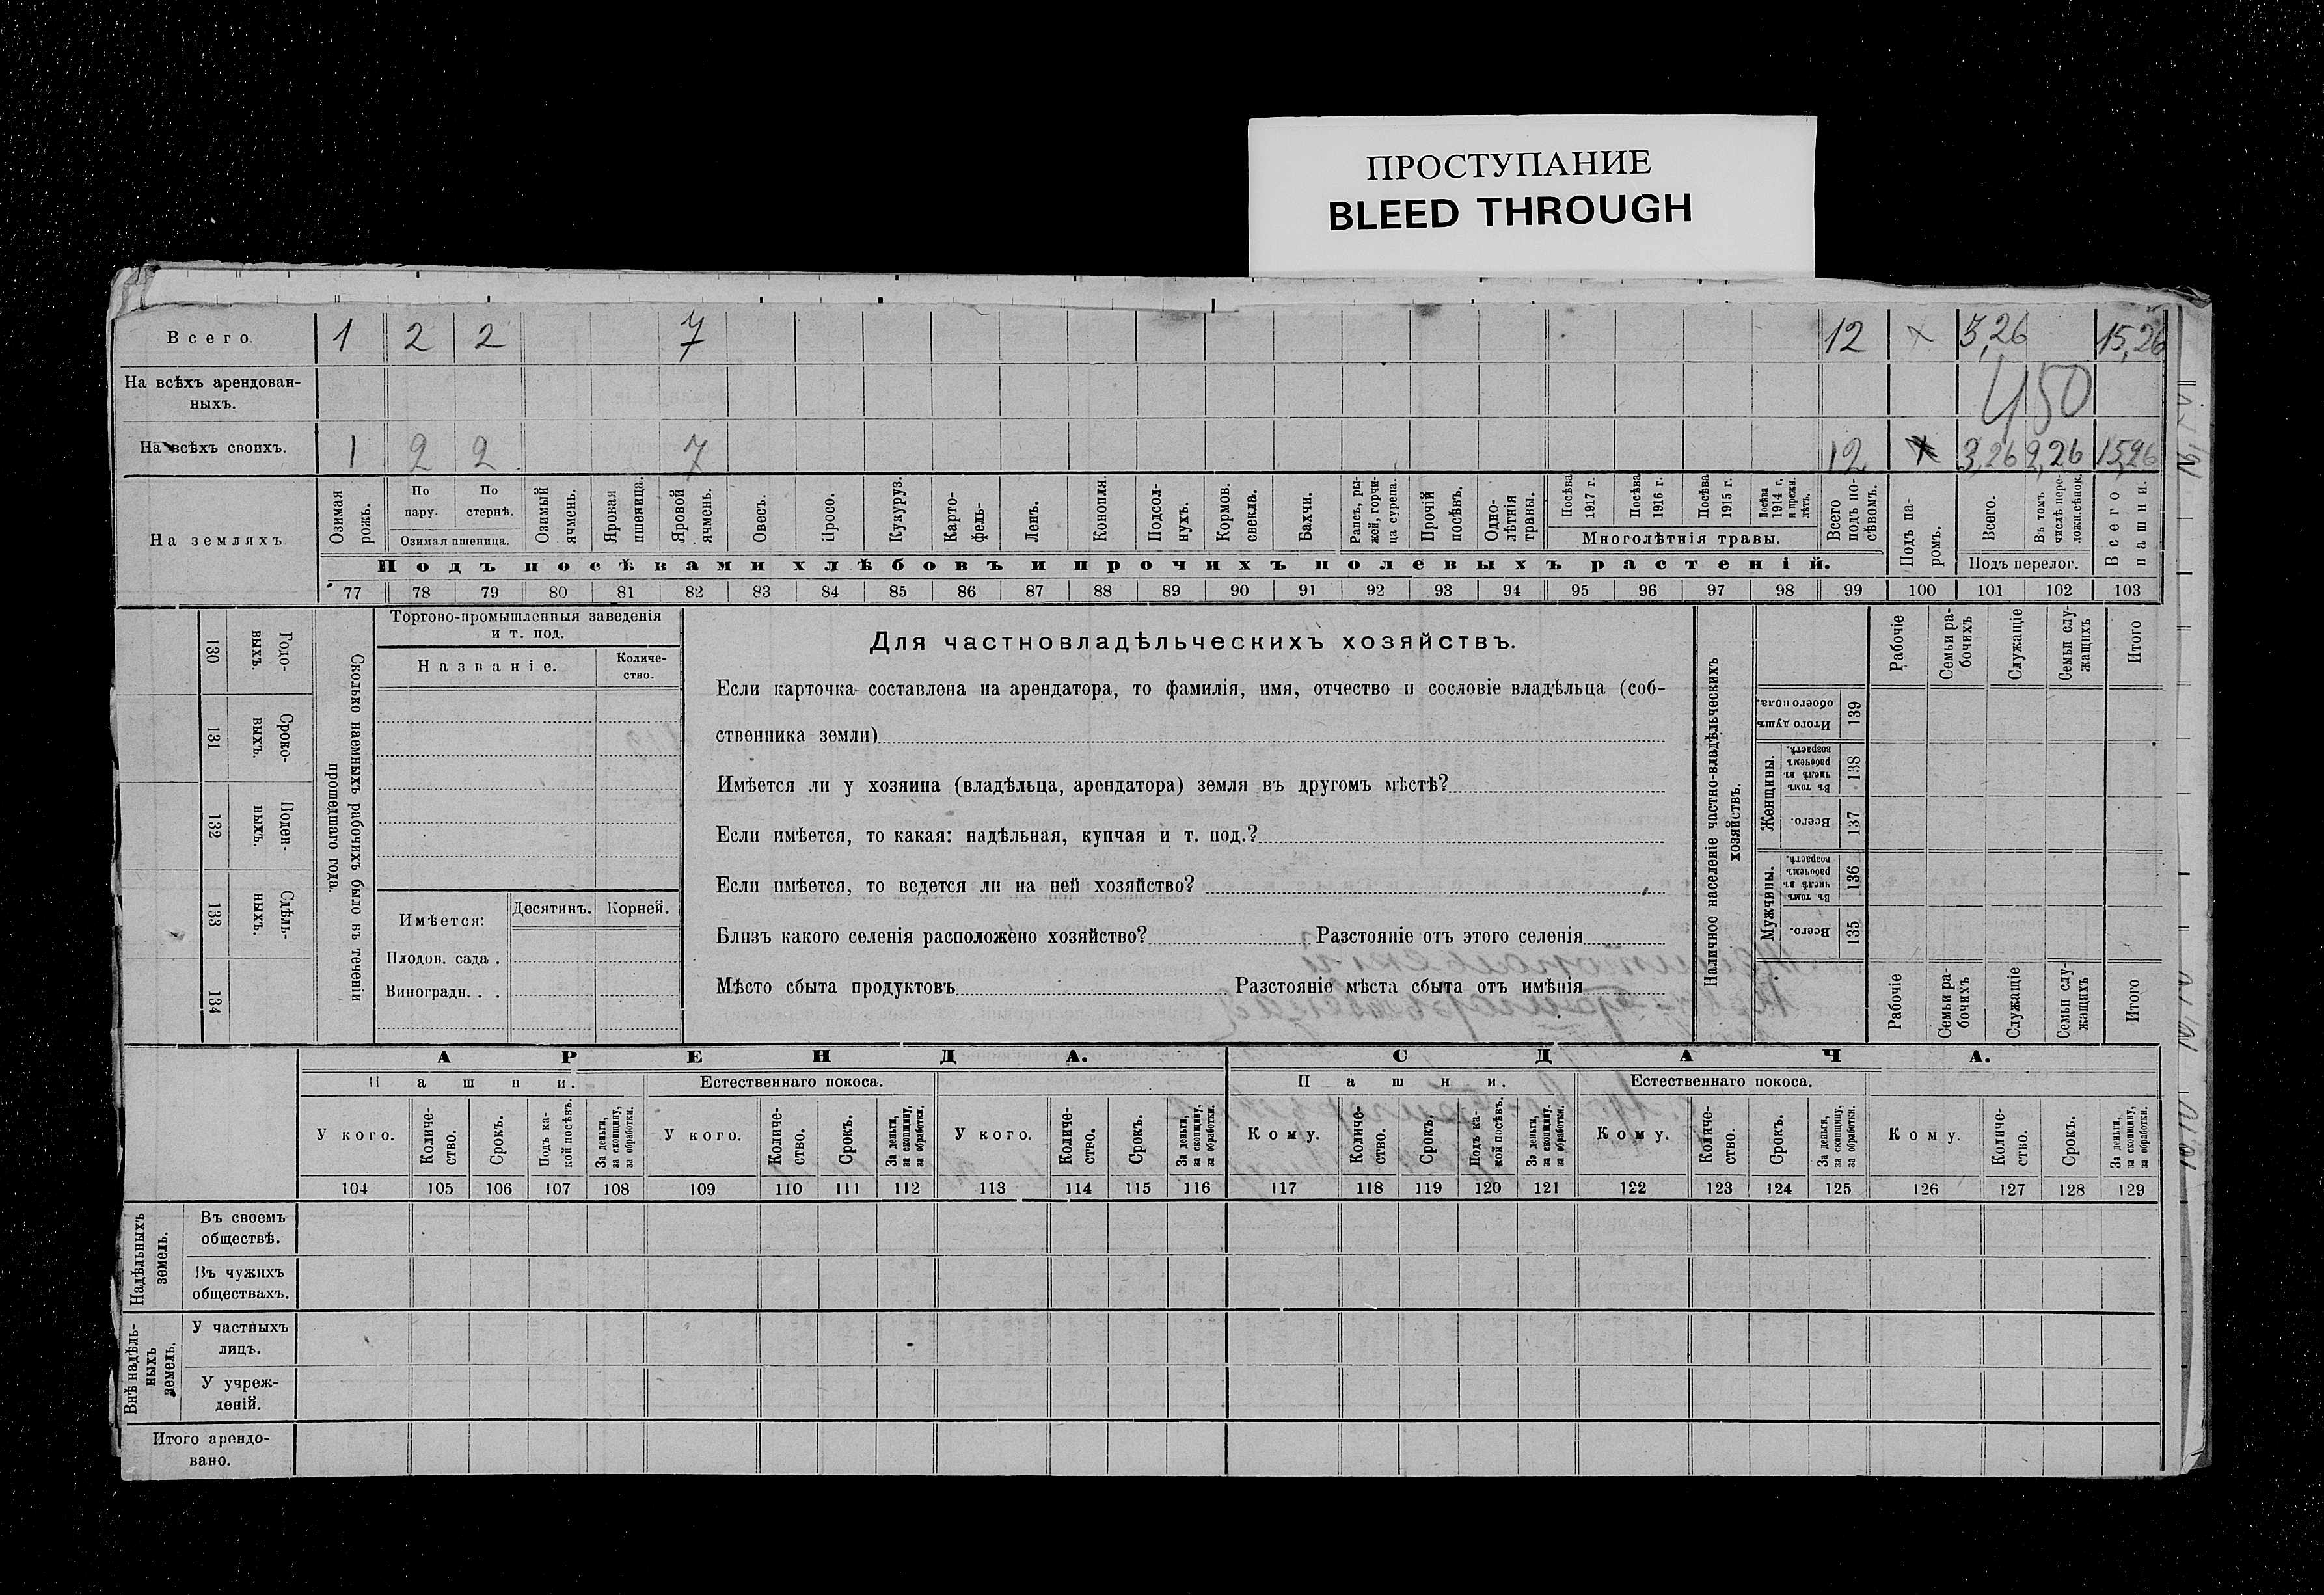 ПРОСТУПАНИЕ
BLEED THROUGH
Всего. 1 2 2 7 12 × 3,26 15,26
На всѣхъ арендован-
ныхъ. 450
На всѣхъ своихъ. 1 2 2 7 12 3,26 2,26 15,26
На земляхъ
Озимая рожь.
По пару.
По стернѣ.
Озимая пшеница.
Озимый ячмень.
Яровая пшеница.
Яровой ячмень.
Овесъ.
Просо.
Кукуруз.
Карто-
фель.
Ленъ.
Конопля.
Подсол-
нухъ.
Кормов.
свекла.
Бахчи.
Рапсъ, ры-
жей, горчи-
ца сурепа.
Прочій
посѣвъ.
Одно-
лѣтнія
травы.
Посѣва
1917 г.
Посѣва
1916 г.
Посѣва
1915 г.
Посѣва
1914 г.
и прежн.
лѣтъ.
Многолѣтнія травы.
Всего
подъ по-
сѣвомъ.
Подъ па-
ромъ.
Всего.
Въ томъ
числѣ пере-
ложн. сѣнок.
Подъ перелог.
Всего
пашни.
Подъ посѣвами хлѣбовъ и прочихъ полевыхъ растеній.
77 78 79 80 81 82 83 84 85 86 87 88 89 90 91 92 93 94 95 96 97 98 99 100 101 102 103
130 Годо-
выхъ.
131 Сроко-
выхъ.
132 Поден-
ныхъ.
133 Сдѣль-
ныхъ.
134
Сколько наемныхъ рабочихъ было въ теченіи
прошедшаго года.
Торгово-промышленныя заведенія
и т. под.
Названіе.
Количе-
ство.
Имѣется:
Десятинъ. Корней.
Плодов. сада .
Виноградн. . .
Для частновладѣльческихъ хозяйствъ.
Если карточка составлена на арендатора, то фамилія, имя, отчество и сословіе владѣльца (соб-
ственника земли)
Имѣется ли у хозяина (владѣльца, арендатора) земля въ другомъ мѣстѣ?
Если имѣется, то какая: надѣльная, купчая и т. под.?
Если имѣется, то ведется ли на ней хозяйство?
Близъ какого селенія расположено хозяйство? Разстояніе отъ этого селенія
Мѣсто сбыта продуктовъ Разстояніе мѣста сбыта отъ имѣнія
Наличное населеніе частно-владѣльческихъ
хозяйствъ.
Рабочіе
Семьи ра-
бочихъ
Служащіе
Семьи слу-
жащихъ
Итого
Итого душъ
обоего пола.
139
Женщины.
Въ томъ
числѣ въ
рабочемъ
возрастѣ.
138
Всего.
137
Мужчины.
Въ томъ
числѣ въ
рабочемъ
возрастѣ.
136
Всего.
135
Рабочіе
Семьи ра-
бочихъ
Служащіе
Семьи слу-
жащихъ
Итого
АРЕНДА. СДАЧА.
Пашни. Естественнаго покоса. Пашни. Естественнаго покоса.
У кого.
Количе-
ство.
Срокъ.
Подъ ка-
кой посѣвъ.
За деньги,
за скопщину,
за обработки.
У кого.
Количе-
ство.
Срокъ.
За деньги,
за скопщину,
за обработки.
У кого.
Количе-
ство.
Срокъ.
За деньги,
за скопщину,
за обработки.
Кому.
Количе-
ство.
Срокъ.
Подъ ка-
кой посѣвъ.
За деньги,
за скопщину,
за обработки.
Кому.
Количе-
ство.
Срокъ.
За деньги,
за скопщину,
за обработки.
Кому.
Количе-
ство.
Срокъ.
За деньги,
за скопщину,
за обработки.
104 105 106 107 108 109 110 111 112 113 114 115 116 117 118 119 120 121 122 123 124 125 126 127 128 129
Надѣльныхъ
земель.
Въ своемъ
обществѣ.
Въ чужихъ
обществахъ.
Внѣ надѣль-
ныхъ
земель.
У частныхъ
лицъ.
У учреж-
деній.
Итого арендо-
вано.